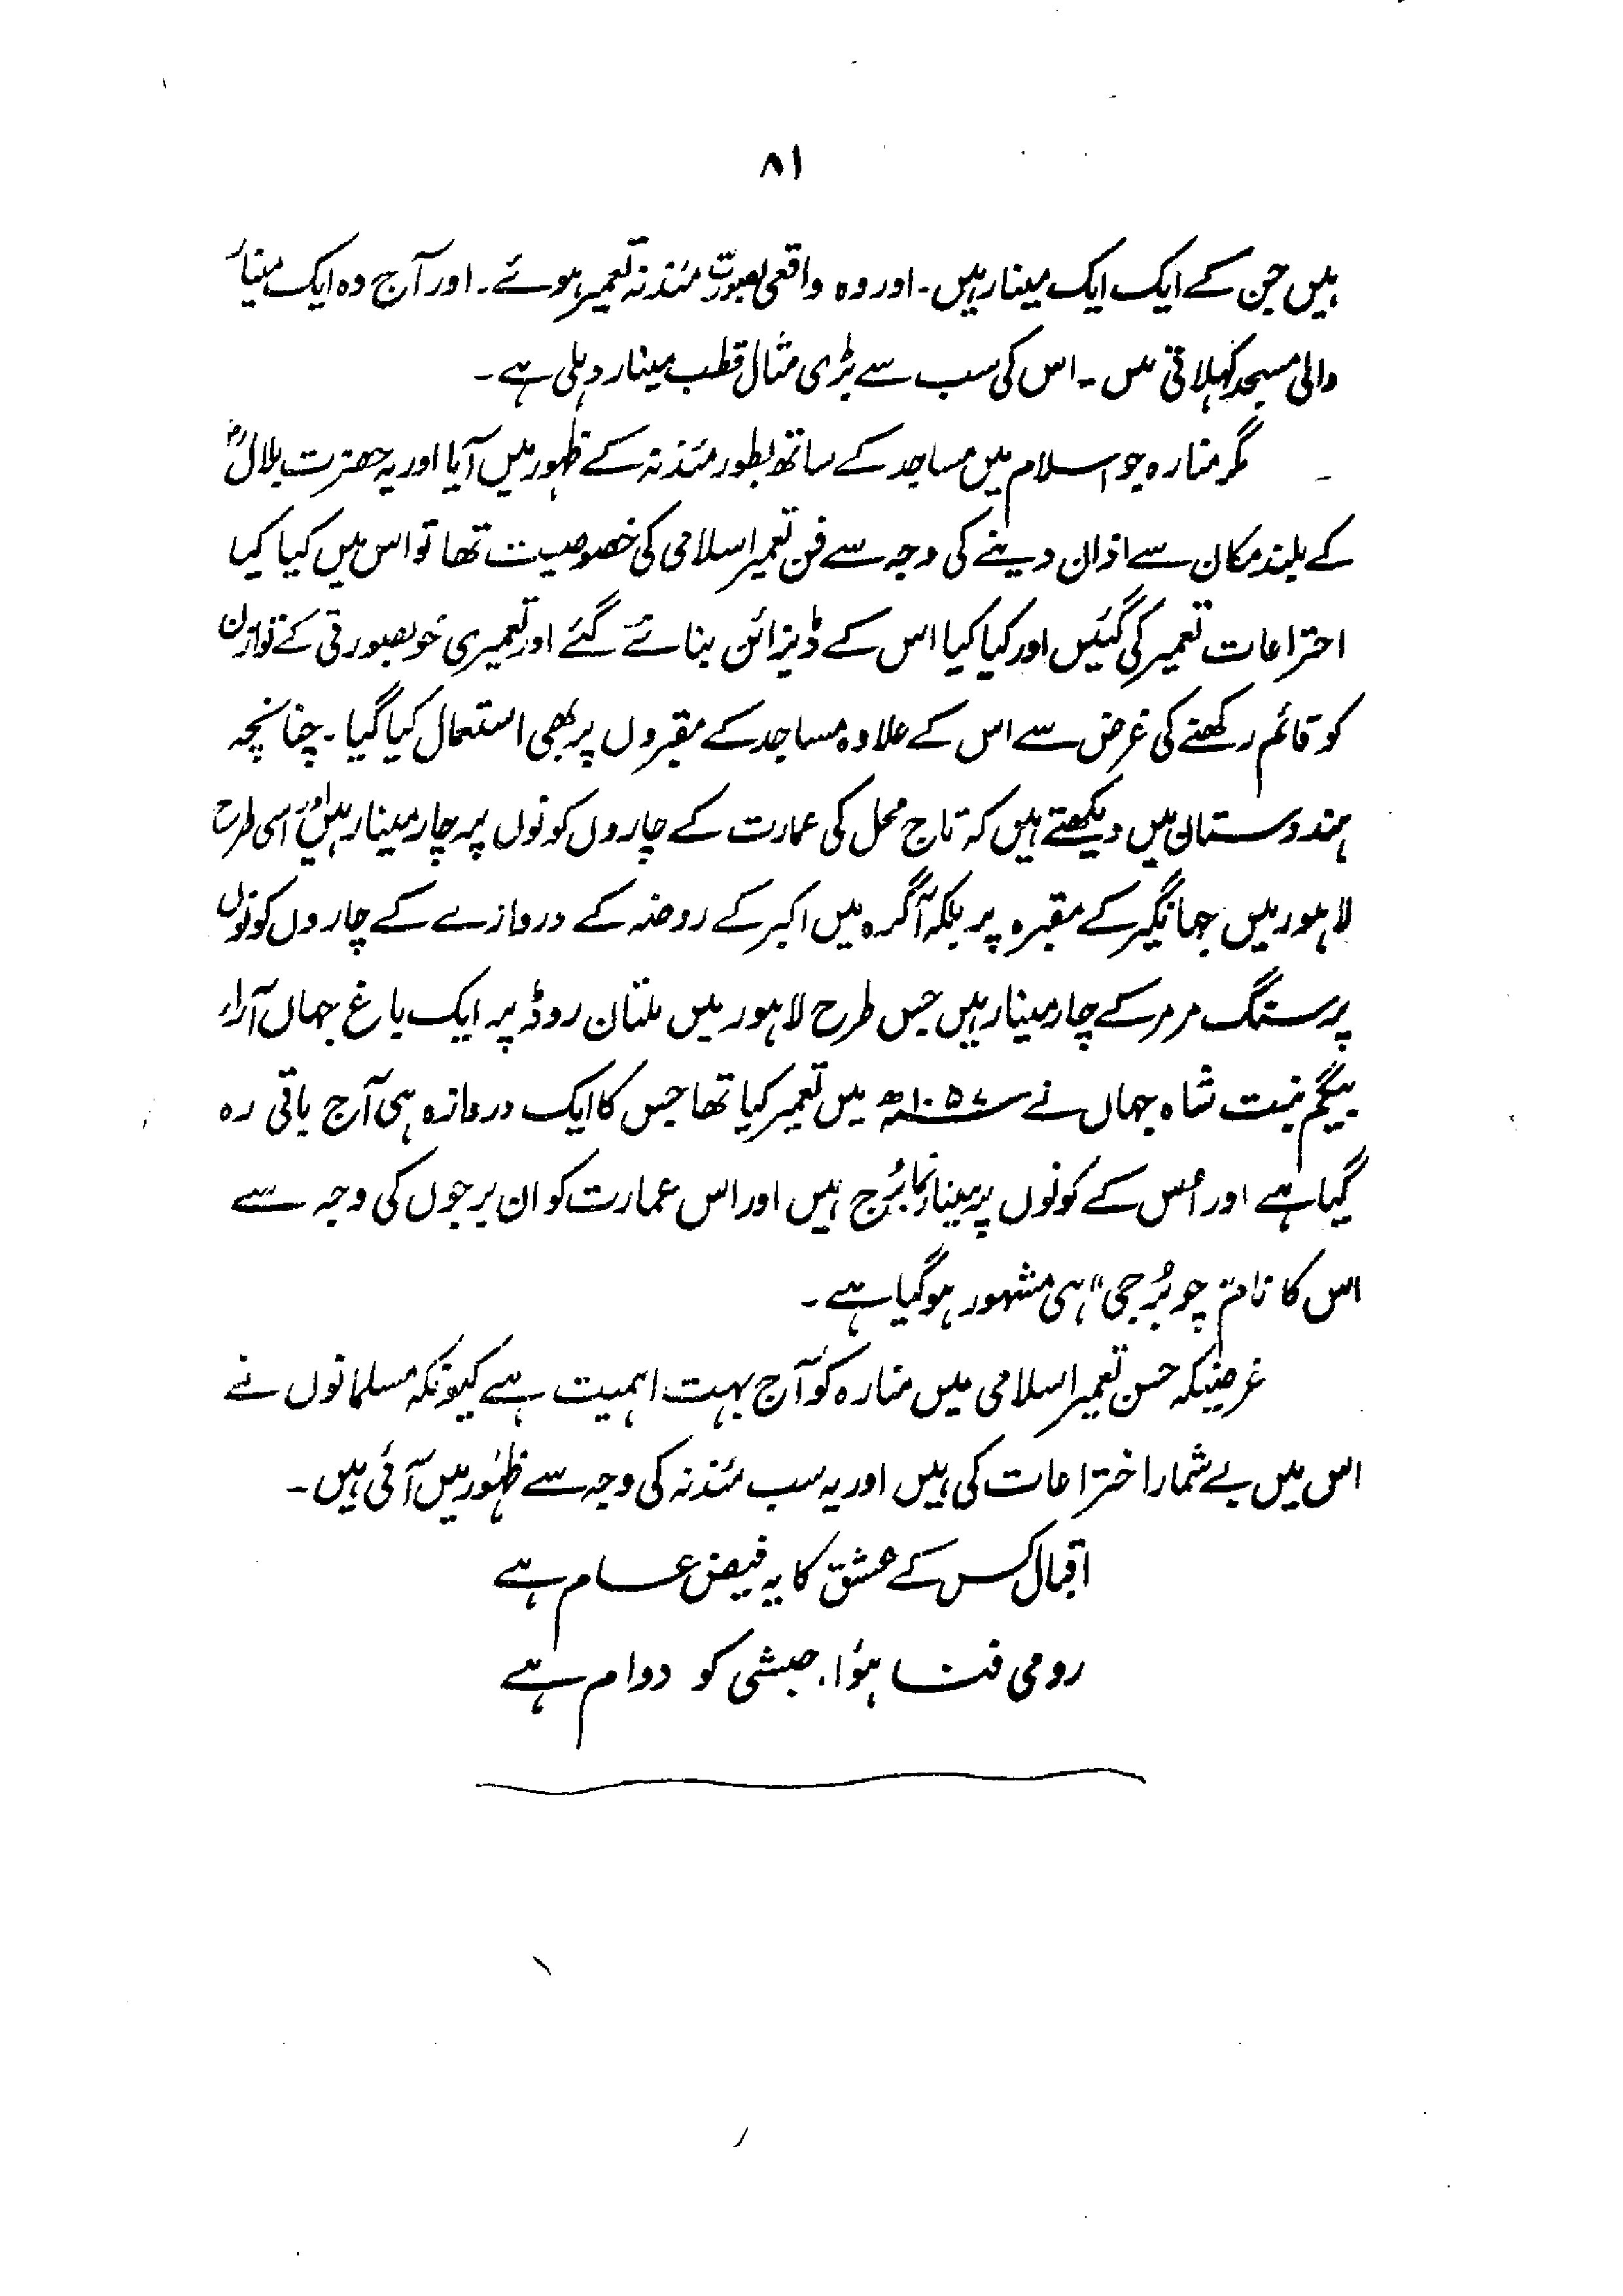 ۸۱
ہیں جن کے ایک ایک مینار ہیں۔ اور وہ واقعی بصورت مئذنہ تعمیر ہوئے۔ اور آج وہ ایک مینار
والی مسجد کہلاتی ہیں۔ اس کی سب سے بڑی مثال قطب مینار دہلی ہے۔
مگر منارہ جو اسلام میں مساجد کے ساتھ بطور مئذنہ کے ظہور میں آیا اور یہ حضرت بلالؓ
کے بلند مکان سے اذان دینے کی وجہ سے فن تعمیر اسلامی کی خصوصیت تھا تو اس میں کیا کیا
اختراعات تعمیر کی گئیں اور کیا کیا اس کے ڈیزائن بنائے گئے اور تعمیری خوبصورتی کے توازن
کو قائم رکھنے کی غرض سے اس کے علاوہ مساجد کے مقبروں پر بھی استعمال کیا گیا۔ چنانچہ
ہندوستان میں دیکھتے ہیں کہ تاج محل کی عمارت کے چاروں کونوں پر چار مینار ہیں اور اسی طرح
لاہور میں جہانگیر کے مقبرہ پر بلکہ آگرہ میں اکبر کے روضہ کے دروازے کے چاروں کونوں
پر سنگ مرمر کے چار مینار ہیں جس طرح لاہور میں ملتان روڈ پر ایک باغ جہاں آراء
بیگم بنت شاہ جہاں نے ۱۰۵۷ھ میں تعمیر کیا تھا جس کا ایک دروازہ ہی آج باقی رہ
گیا ہے اور اُس کے کونوں پر مینار نما بُرج ہیں اور اس عمارت کو ان برجوں کی وجہ سے
اس کا نام "چوبُرجی" ہی مشہور ہو گیا ہے۔
غرضیکہ حسن تعمیر اسلامی میں منارہ کو آج بہت اہمیت ہے کیونکہ مسلمانوں نے
اس میں بے شمار اختراعات کی ہیں اور یہ سب مئذنہ کی وجہ سے ظہور میں آئی ہیں۔
اقبال کس کے عشق کا یہ فیض عام ہے
رومی فنا ہؤا، حبشی کو دوام ہے